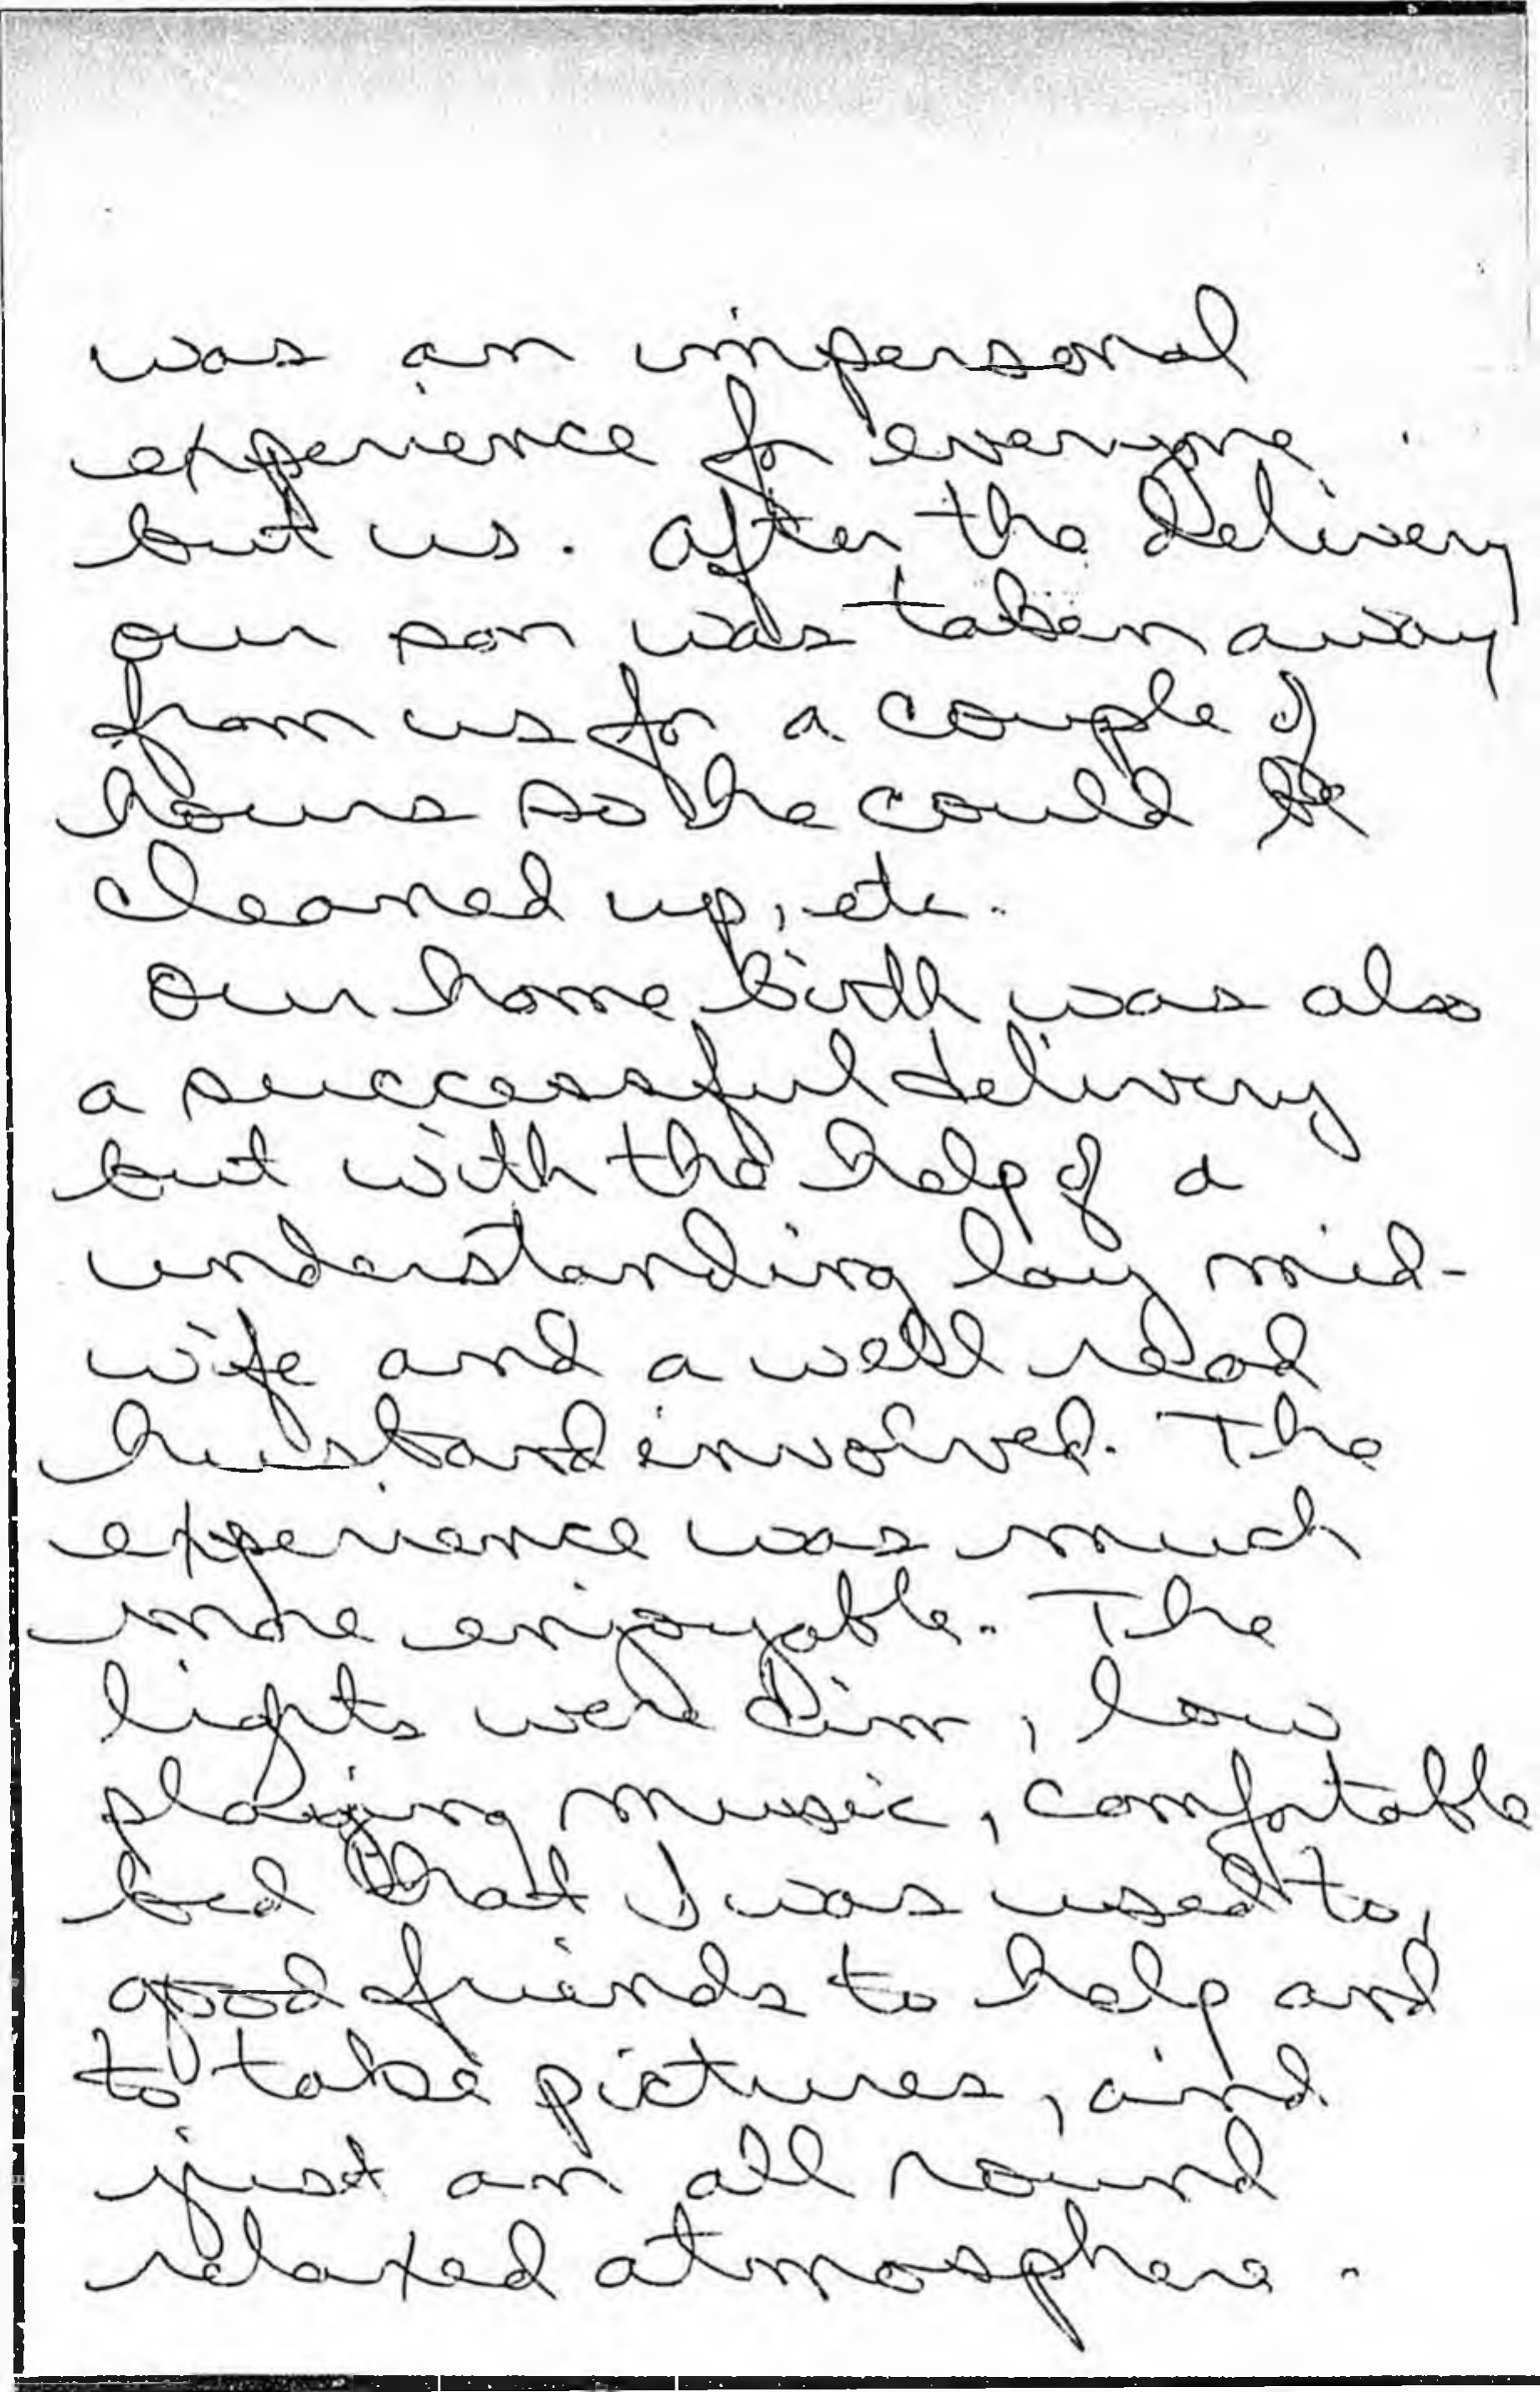 was an impersonal
experience for everyone
but us. After the delivery
our son was taken away
from us for a couple of
hours so he could be
cleaned up, etc.
Our home birth was also
a successful delivery
but with the help of a
understanding lay mid-
wife and a well read
husband involved. The
experience was much
more enjoyable. The
lights were dim, low
playing music, comfortable
bed that I was used to,
good friends to help and
to take pictures, and
just an all round
relaxed atmosphere.